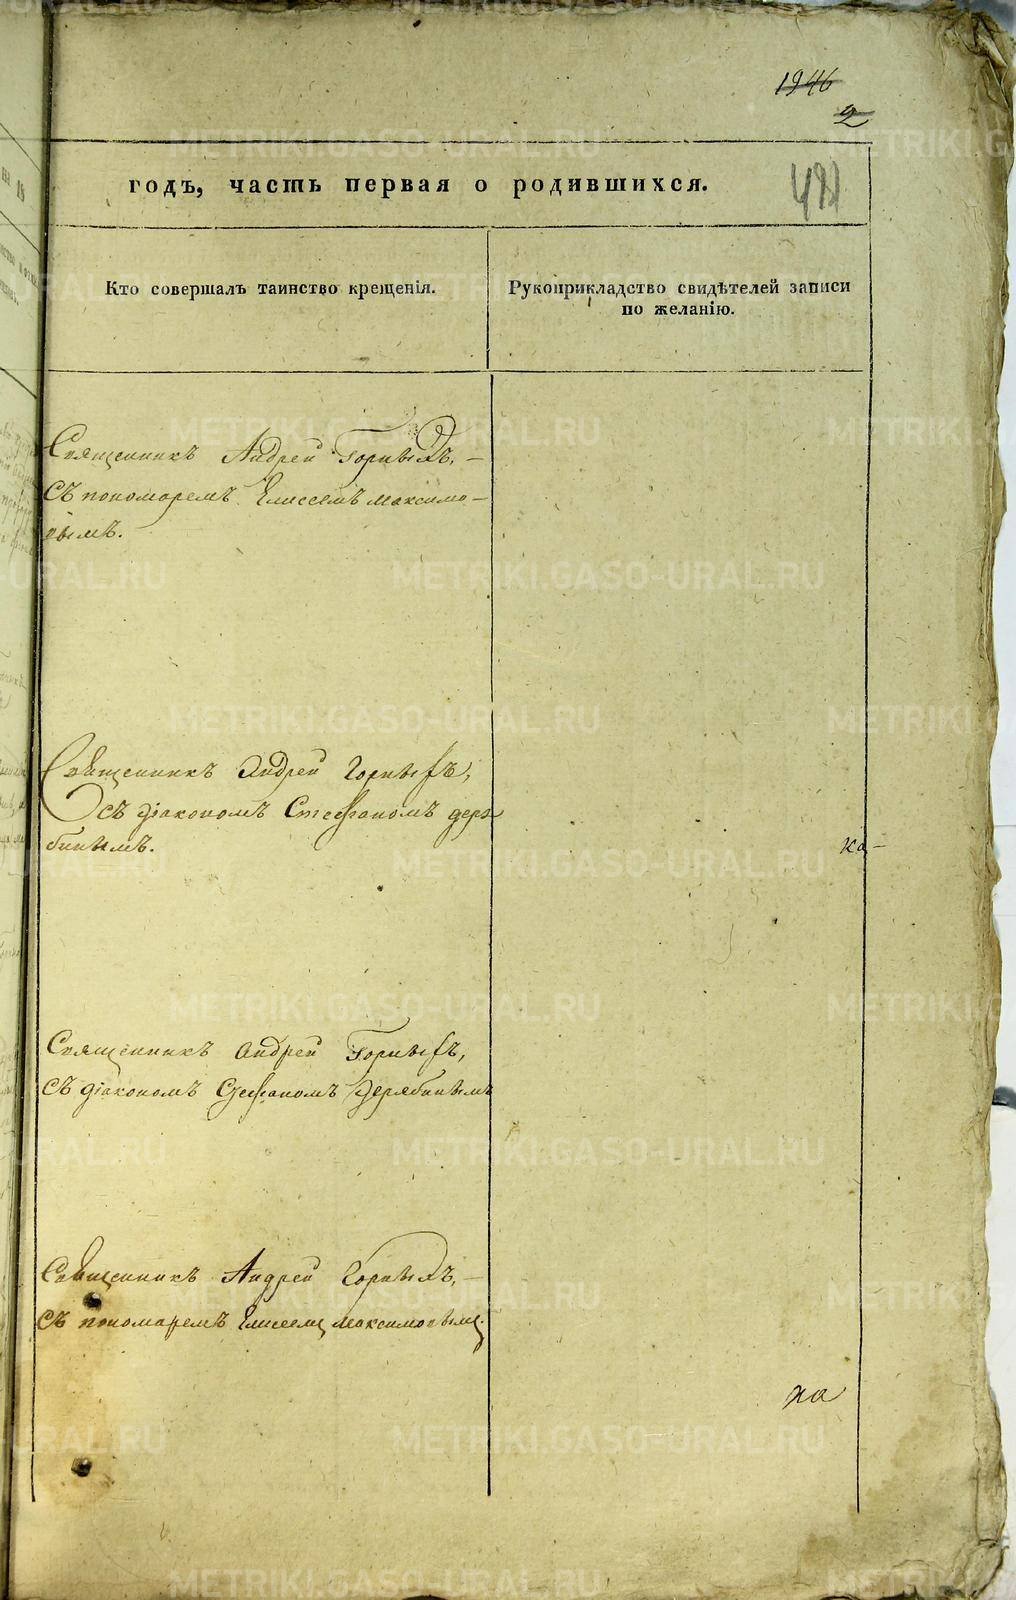 1946
2
годъ, часть первая о родившихся.
Кто совершалъ таинство крещенія.
Рукоприкладство свидѣтелей записи
по желанію.
Священникъ Андрей Горныхъ, –
съ пономаремъ Елисеемъ Максимо–
вымъ.
Священникъ Андрей Горныхъ,
съ діакономъ Стефаномъ Деря
бинымъ.
ка–
Священникъ Андрей Горныхъ,
съ діакономъ Стефаномъ Дерябинымъ
Священникъ Андрей Горныхъ, –
съ пономаремъ Елисеемъ Максимовымъ.
METRIKI.GASO-URAL.RU